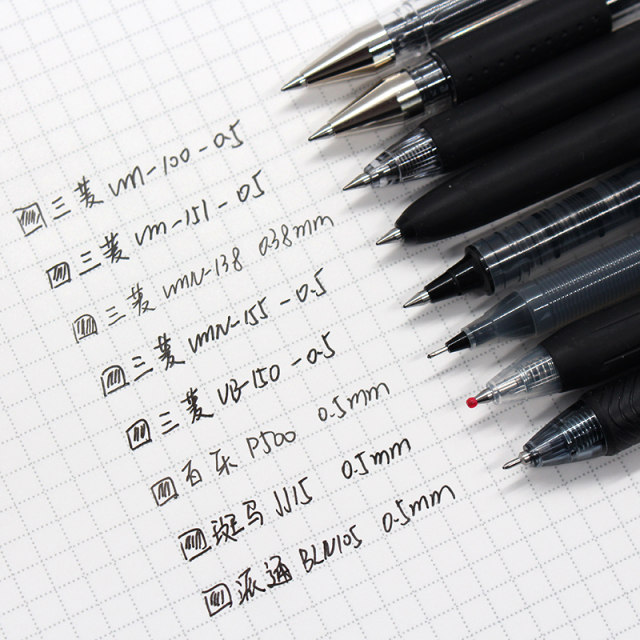 三菱 UM-100-0.5
三菱 UM-151-0.5
三菱 UMN-138 0.38mm
三菱 UMN-155-0.5
三菱 UB-150-0.5
百乐 P500 0.5mm
斑马 JJ15 0.5mm
派通 BLN105 0.5mm